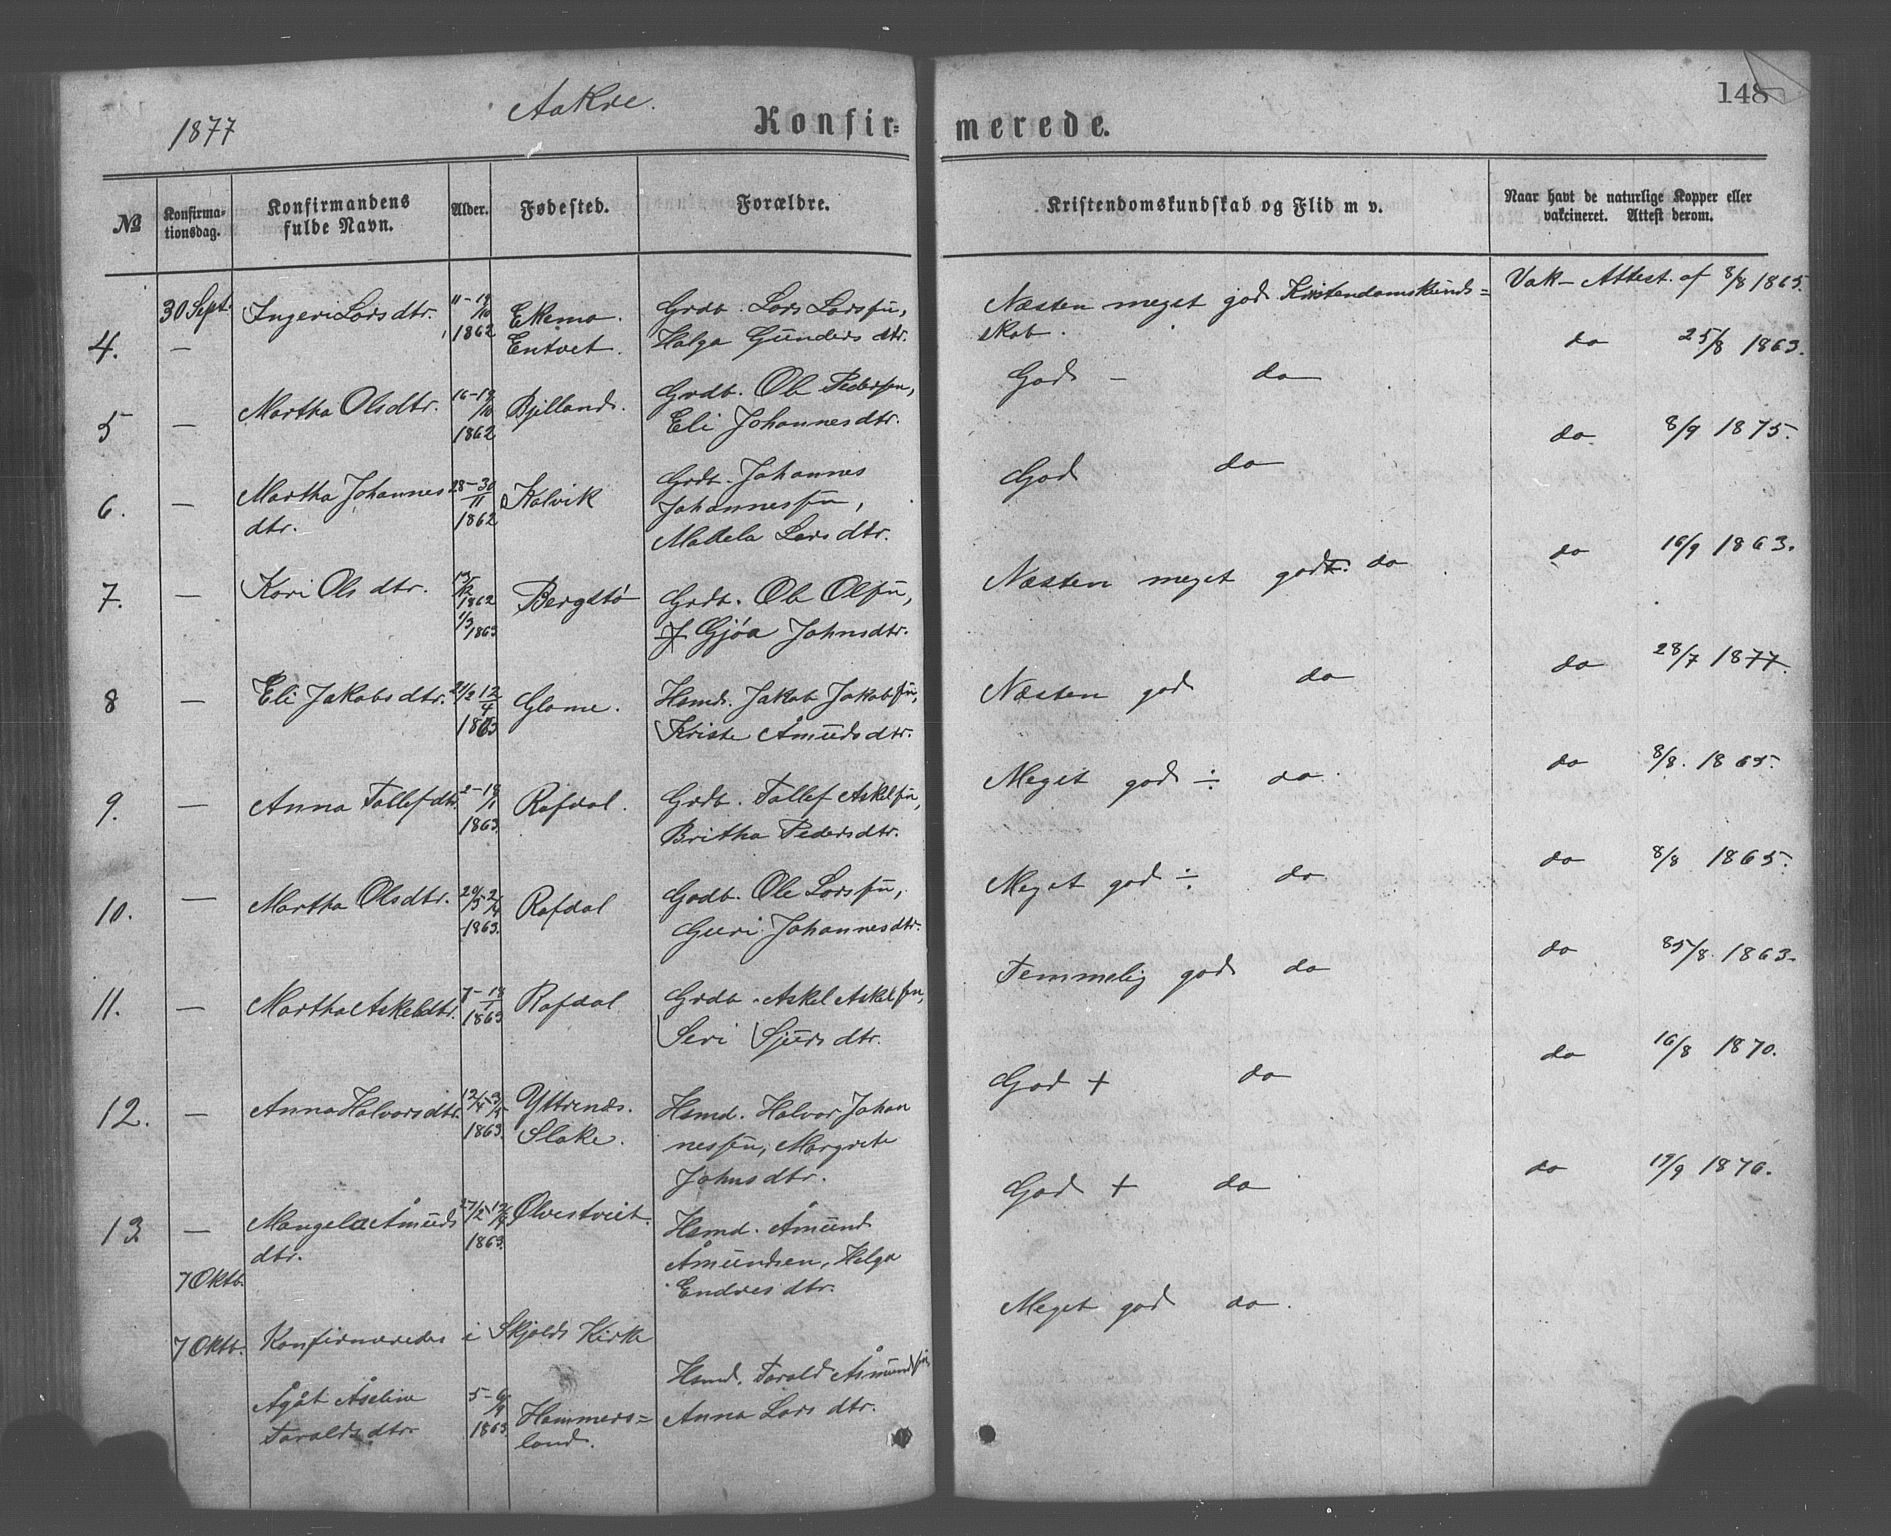 1877
Aakre.
Konfir-
merede.
148
№
Konfirma-
tionsdag.
Konfirmandens
fulde Navn.
Alder.
Fødested.
Forældre.
Kristendomskundskab og Flid m v.
Naar havt de naturlige Kopper eller
vakcineret. Attest derom.
4. 30 Sept. — Ingeri Lars dtr. 1862 Entvet. Grdb. Lars Larssøn,
Helga Gunders dtr. Næsten meget god Kristendomskund-
skab. Vak- Attest. af 8/8 1865.
5 — Martha Olsdtr. 16-19/10 1862 Bjilland. Grdb. Ole Pedersøn,
Eli Johannesdtr. God — do do 25/8 1863.
6. — Martha Johannes
dtr. 28-30/11 1862 Kalvik Grdb. Johannes
Johannessøn,
Madela Lars dtr. God do do 8/9 1875.
7. — Kari Ols dtr. 1862 1/3 1863 Bergstø Grdb. Ole Olsøn,
Gjøa Johnsdtr. Næsten meget godt. do do 16/9 1863.
8 — Eli Jakobsdtr. 2/2 12/4 1863 Glame. Hsmd. Jakob Jakobsøn,
Kriste Åmunds dtr. Næsten god do do 28/7 1877.
9. — Anna Tollefdtr. 2-18/1 1863. Rafdal. Grdb. Tollef Askelsøn,
Britha Pedersdtr. Meget god ÷ do. do 8/8. 1865.
10. — Martha Olsdtr. 1863. Rafdal Ole Larssøn,
Guri Johannesdtr. Meget god ÷ do do 8/8 1865.
11. — Martha Askeldtr. 7-18/1 1863 Rafdal Grdb. Askel Askelsøn,
Siri Sjurs dtr. Temmelig god do do 1863.
12. — Anna Halvorsdtr. 12/4-3/5 1863. Yttrenæs.
Slake. Hsmd. Halvor Johan
nessøn, Margrete
Johns dtr. God + do do 16/8 1870.
13. — Mangela Åmunds
dtr. 1863. Ølvestveit. Hsmd. Åmund
Åmundsen, Helga
Endres dtr. God + do do 1876.
7 Oktb.
7 Oktb. Konfirmeredes i Skjolds Kirke
Ågåt Åseline
Taralds dtr. 5-6/9 1863. Hammers-
land. Hsmd. Tarald Åsmundsøn
Anna Lars dtr. Meget god do.